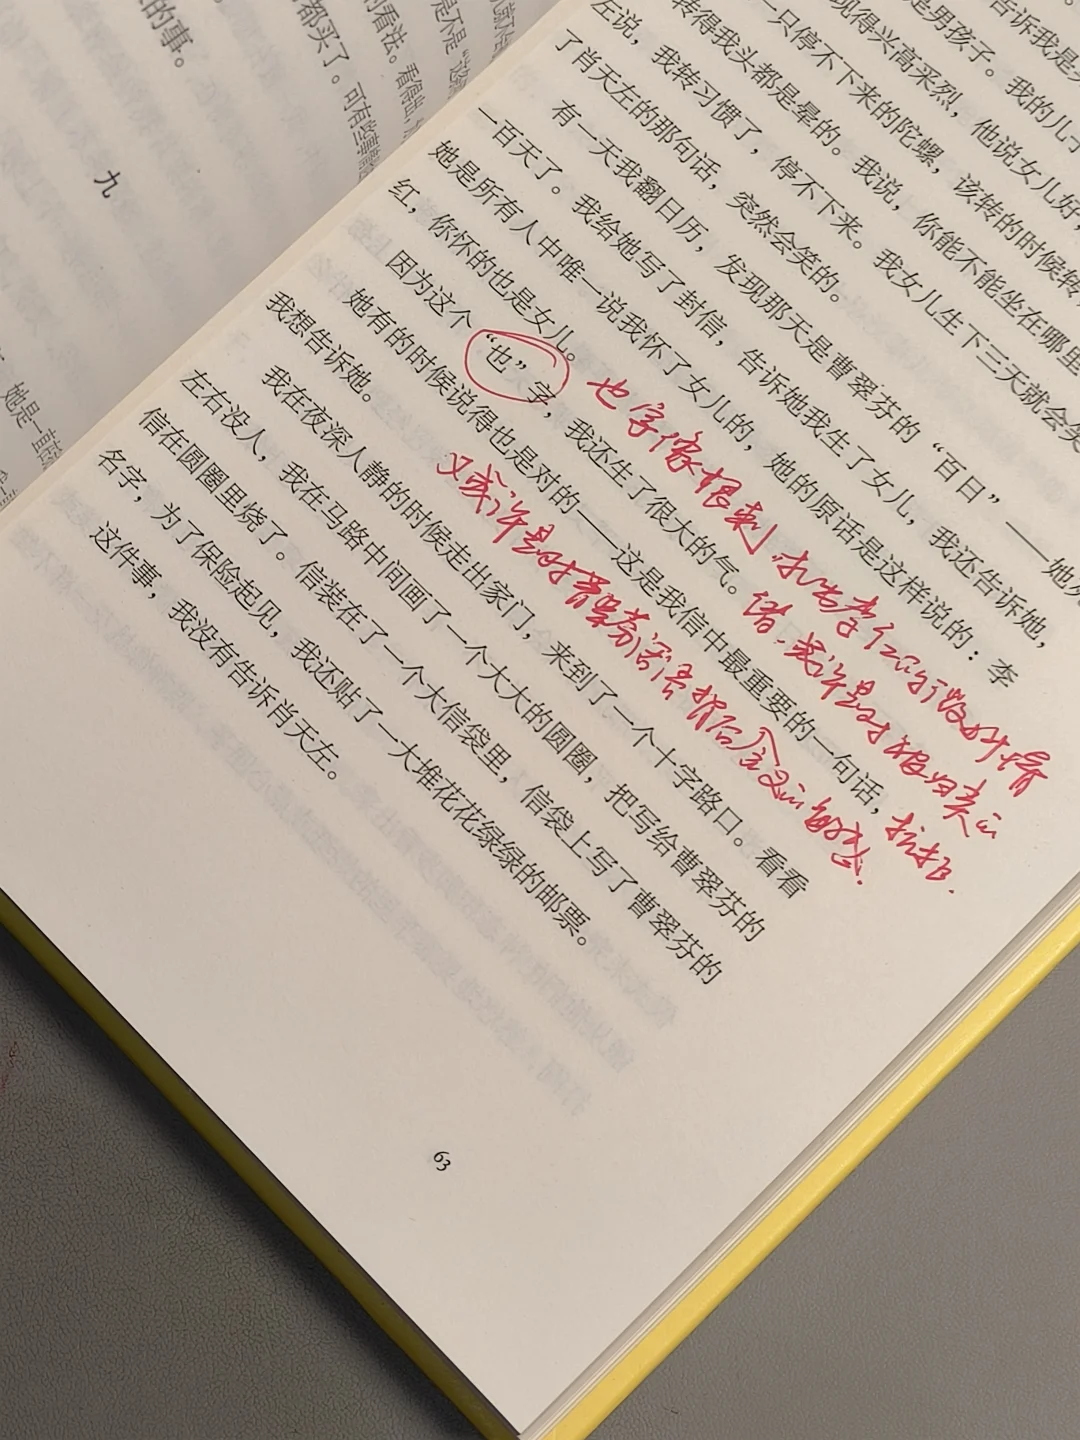 的事。
九
都买了。可有些事情
的看法。看得出,
是不是“这
她是一直
告诉我是
是男孩子。我的儿子
现得兴高采烈,他说女儿好,
一只停不下来的陀螺,该转的时候转
转得我头都是晕的。我说,你能不能坐在哪里
左说,我转习惯了,停不下来。我女儿生下三天就会笑
了肖天左的那句话,突然会笑的。
有一天我翻日历,发现那天是曹翠芬的“百日”——她死
一百天了。我给她写了封信,告诉她我生了女儿,我还告诉她,
她是所有人中唯一说我怀了女儿的,她的原话是这样说的:李
红,你怀的也是女儿。
因为这个“也”字,我还生了很大的气。
她有的时候说得也是对的——这是我信中最重要的一句话,
我想告诉她。
我在夜深人静的时候走出家门,来到了一个十字路口。看看
左右没人,我在马路中间画了一个大大的圆圈,把写给曹翠芬的
信在圆圈里烧了。信装在了一个大信袋里,信袋上写了曹翠芬的
名字,为了保险起见,我还贴了一大堆花花绿绿的邮票。
这件事,我没有告诉肖天左。
也字像根刺,
绪,或许是对被归类的
抗拒.
又或许是对曹翠芬话语背后含义的敏感.
63